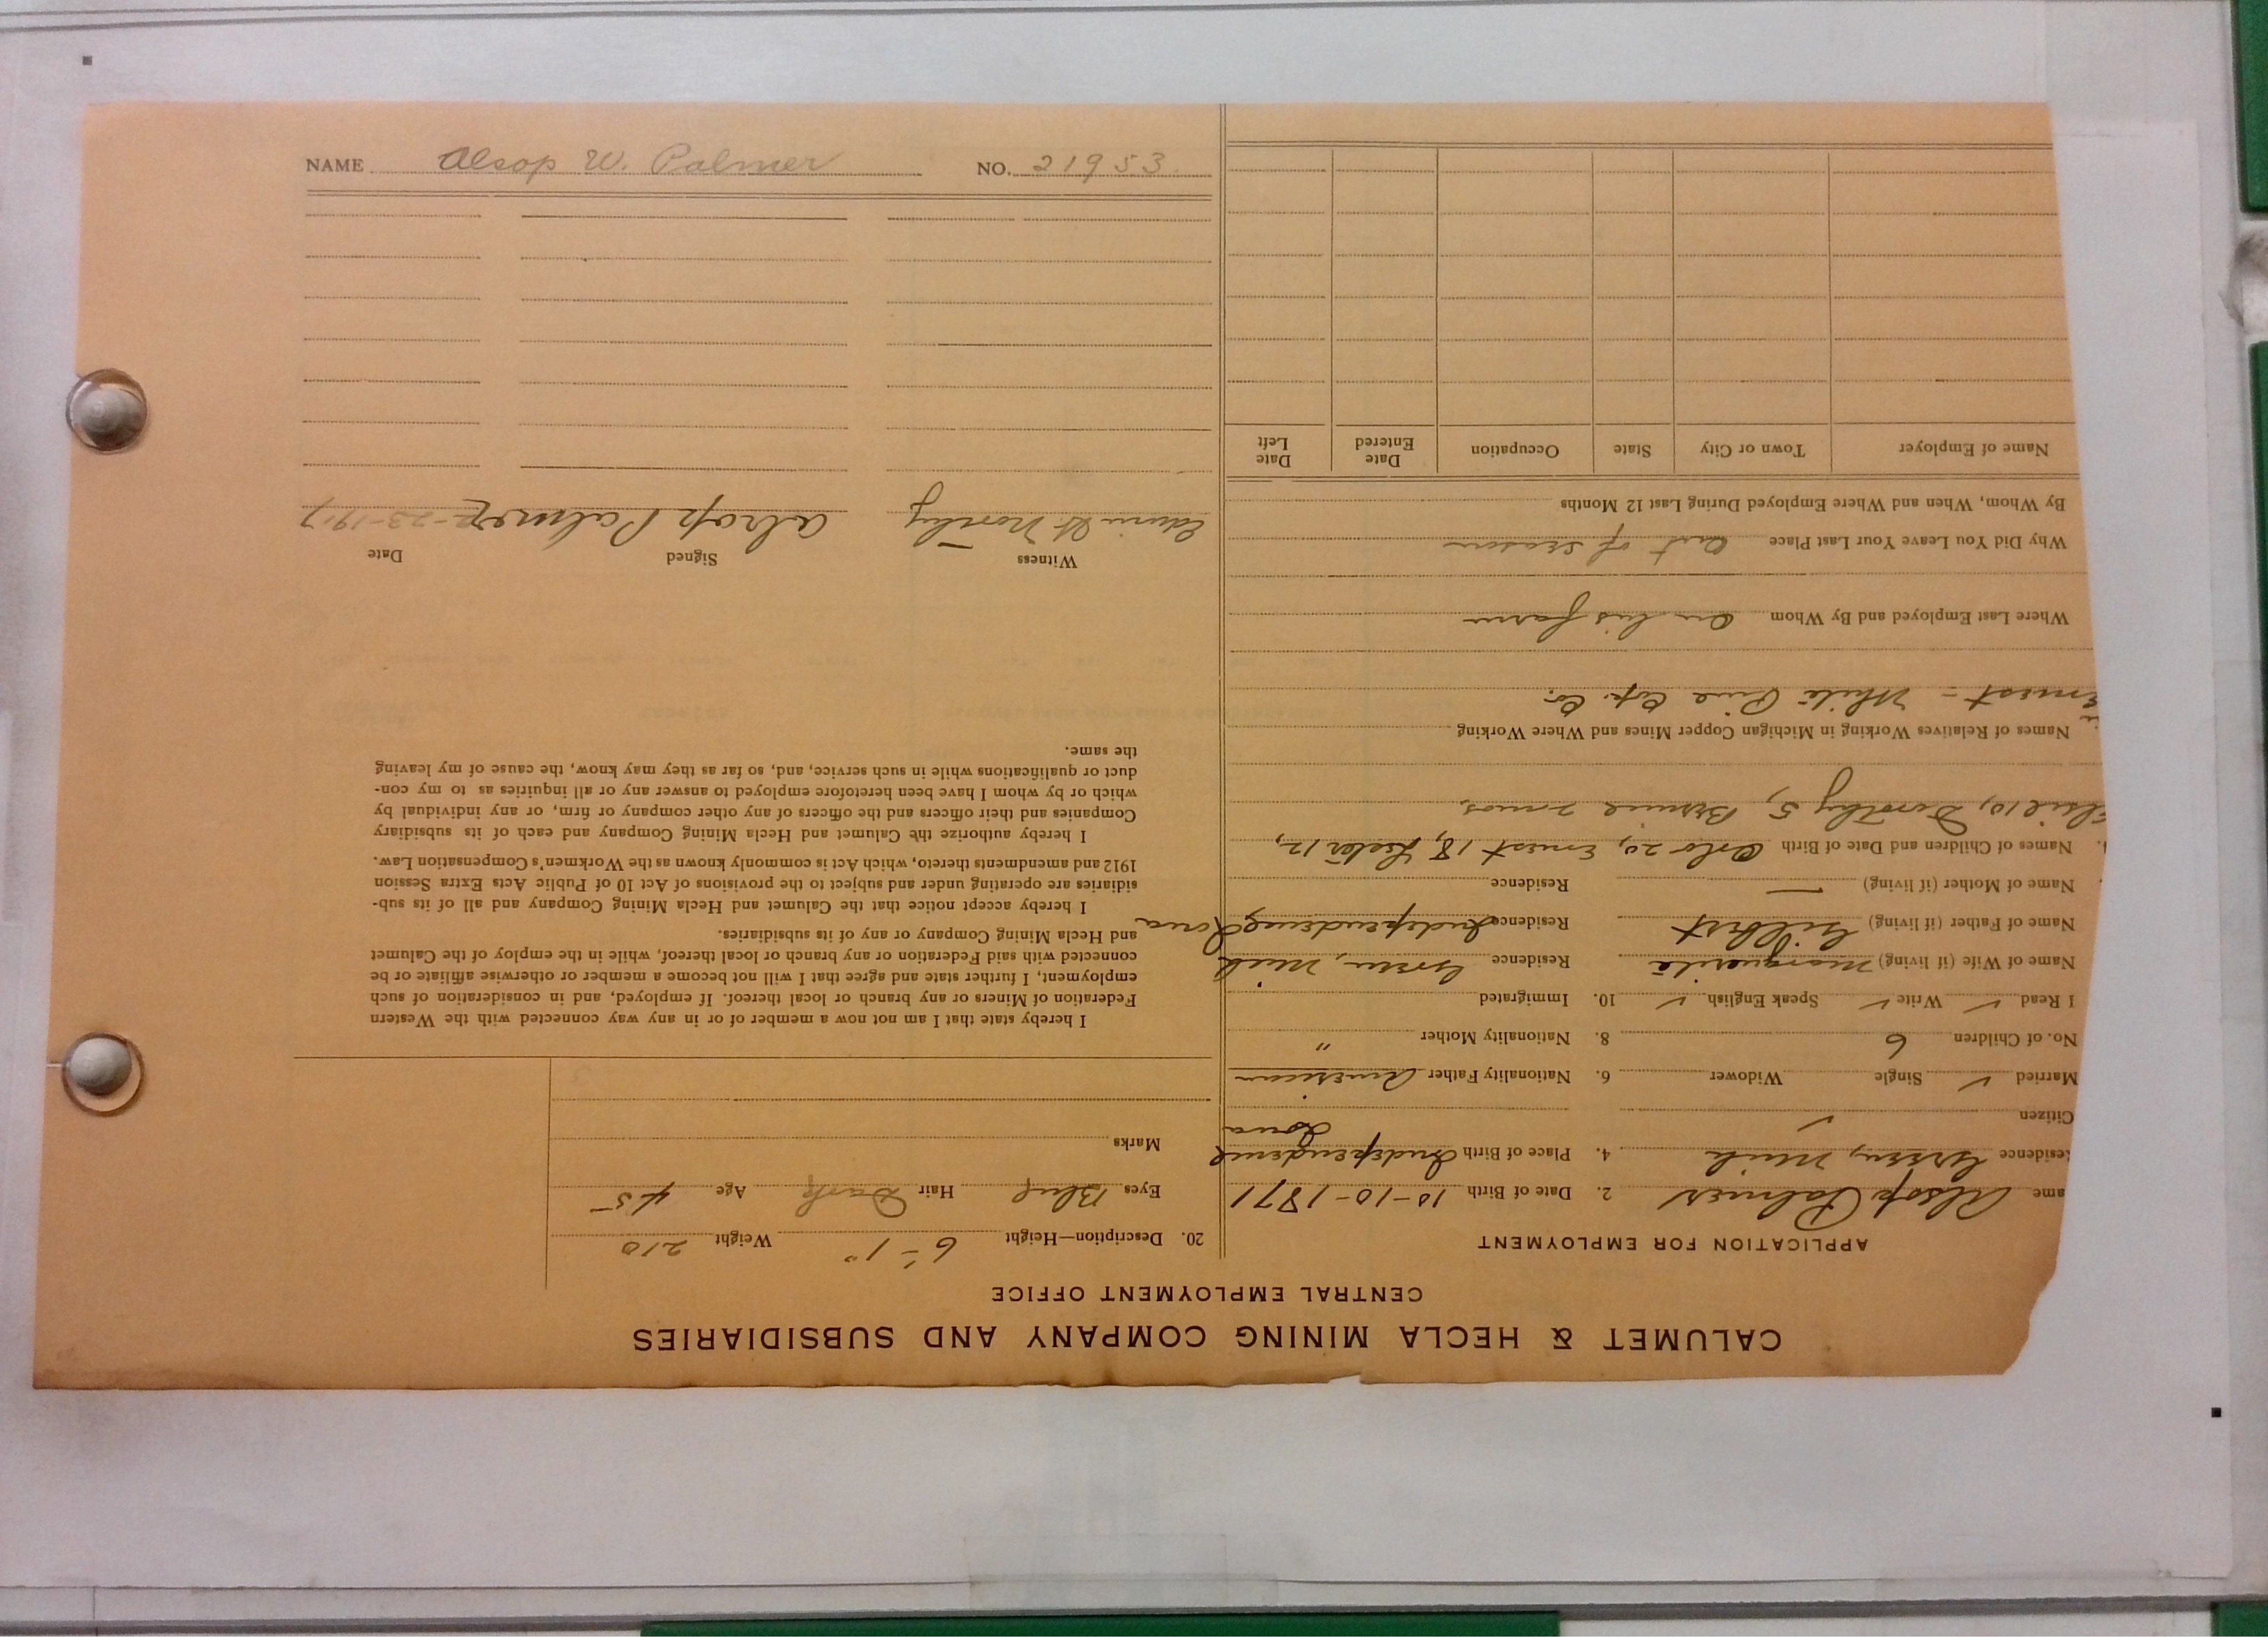 CALUMET & HECLA MINING COMPANY AND SUBSIDIARIES
CENTRAL EMPLOYMENT OFFICE
APPLICATION FOR EMPLOYMENT
ame Alsop Palmer 2. Date of Birth 10-10-1871
esidence Green, Mich 4. Place of Birth Independence
Iowa
Citizen ✓
Married ✓ Single Widower 6. Nationality Father American
No. of Children 6 8. Nationality Mother "
I Read ✓ Write ✓ Speak English ✓ 10. Immigrated
Name of Wife (if living) Marguerite Residence Green, Mich
Name of Father (if living) Gilbert Residence Independence Iowa
Name of Mother (if living) — Residence
Names of Children and Date of Birth 20, Ernest 18, 12,
Elsie 10, Dorothy 5, Bernice 7 mos.
Names of Relatives Working in Michigan Copper Mines and Where Working
Ernest - White Pine Cop. Co.
Where Last Employed and By Whom On his farm
Why Did You Leave Your Last Place Out of season
By Whom, When and Where Employed During Last 12 Months
Name of Employer Town or City State Occupation Date Entered Date Left
20. Description—Height 6'-1" Weight 210
Eyes Blue Hair Dark Age 45
Marks
I hereby state that I am not now a member of or in any way connected with the Western
Federation of Miners or any branch or local thereof. If employed, and in consideration of such
employment, I further state and agree that I will not become a member or otherwise affiliate or be
connected with said Federation or any branch or local thereof, while in the employ of the Calumet
and Hecla Mining Company or any of its subsidiaries.
I hereby accept notice that the Calumet and Hecla Mining Company and all of its sub-
sidiaries are operating under and subject to the provisions of Act 10 of Public Acts Extra Session
1912 and amendments thereto, which Act is commonly known as the Workmen's Compensation Law.
I hereby authorize the Calumet and Hecla Mining Company and each of its subsidiary
Companies and their officers and the officers of any other company or firm, or any individual by
which or by whom I have been heretofore employed to answer any or all inquiries as to my con-
duct or qualifications while in such service, and, so far as they may know, the cause of my leaving
the same.
Witness Signed Date
Edwin Alsop Palmer 2-23-1917
NAME Alsop W. Palmer NO. 21953